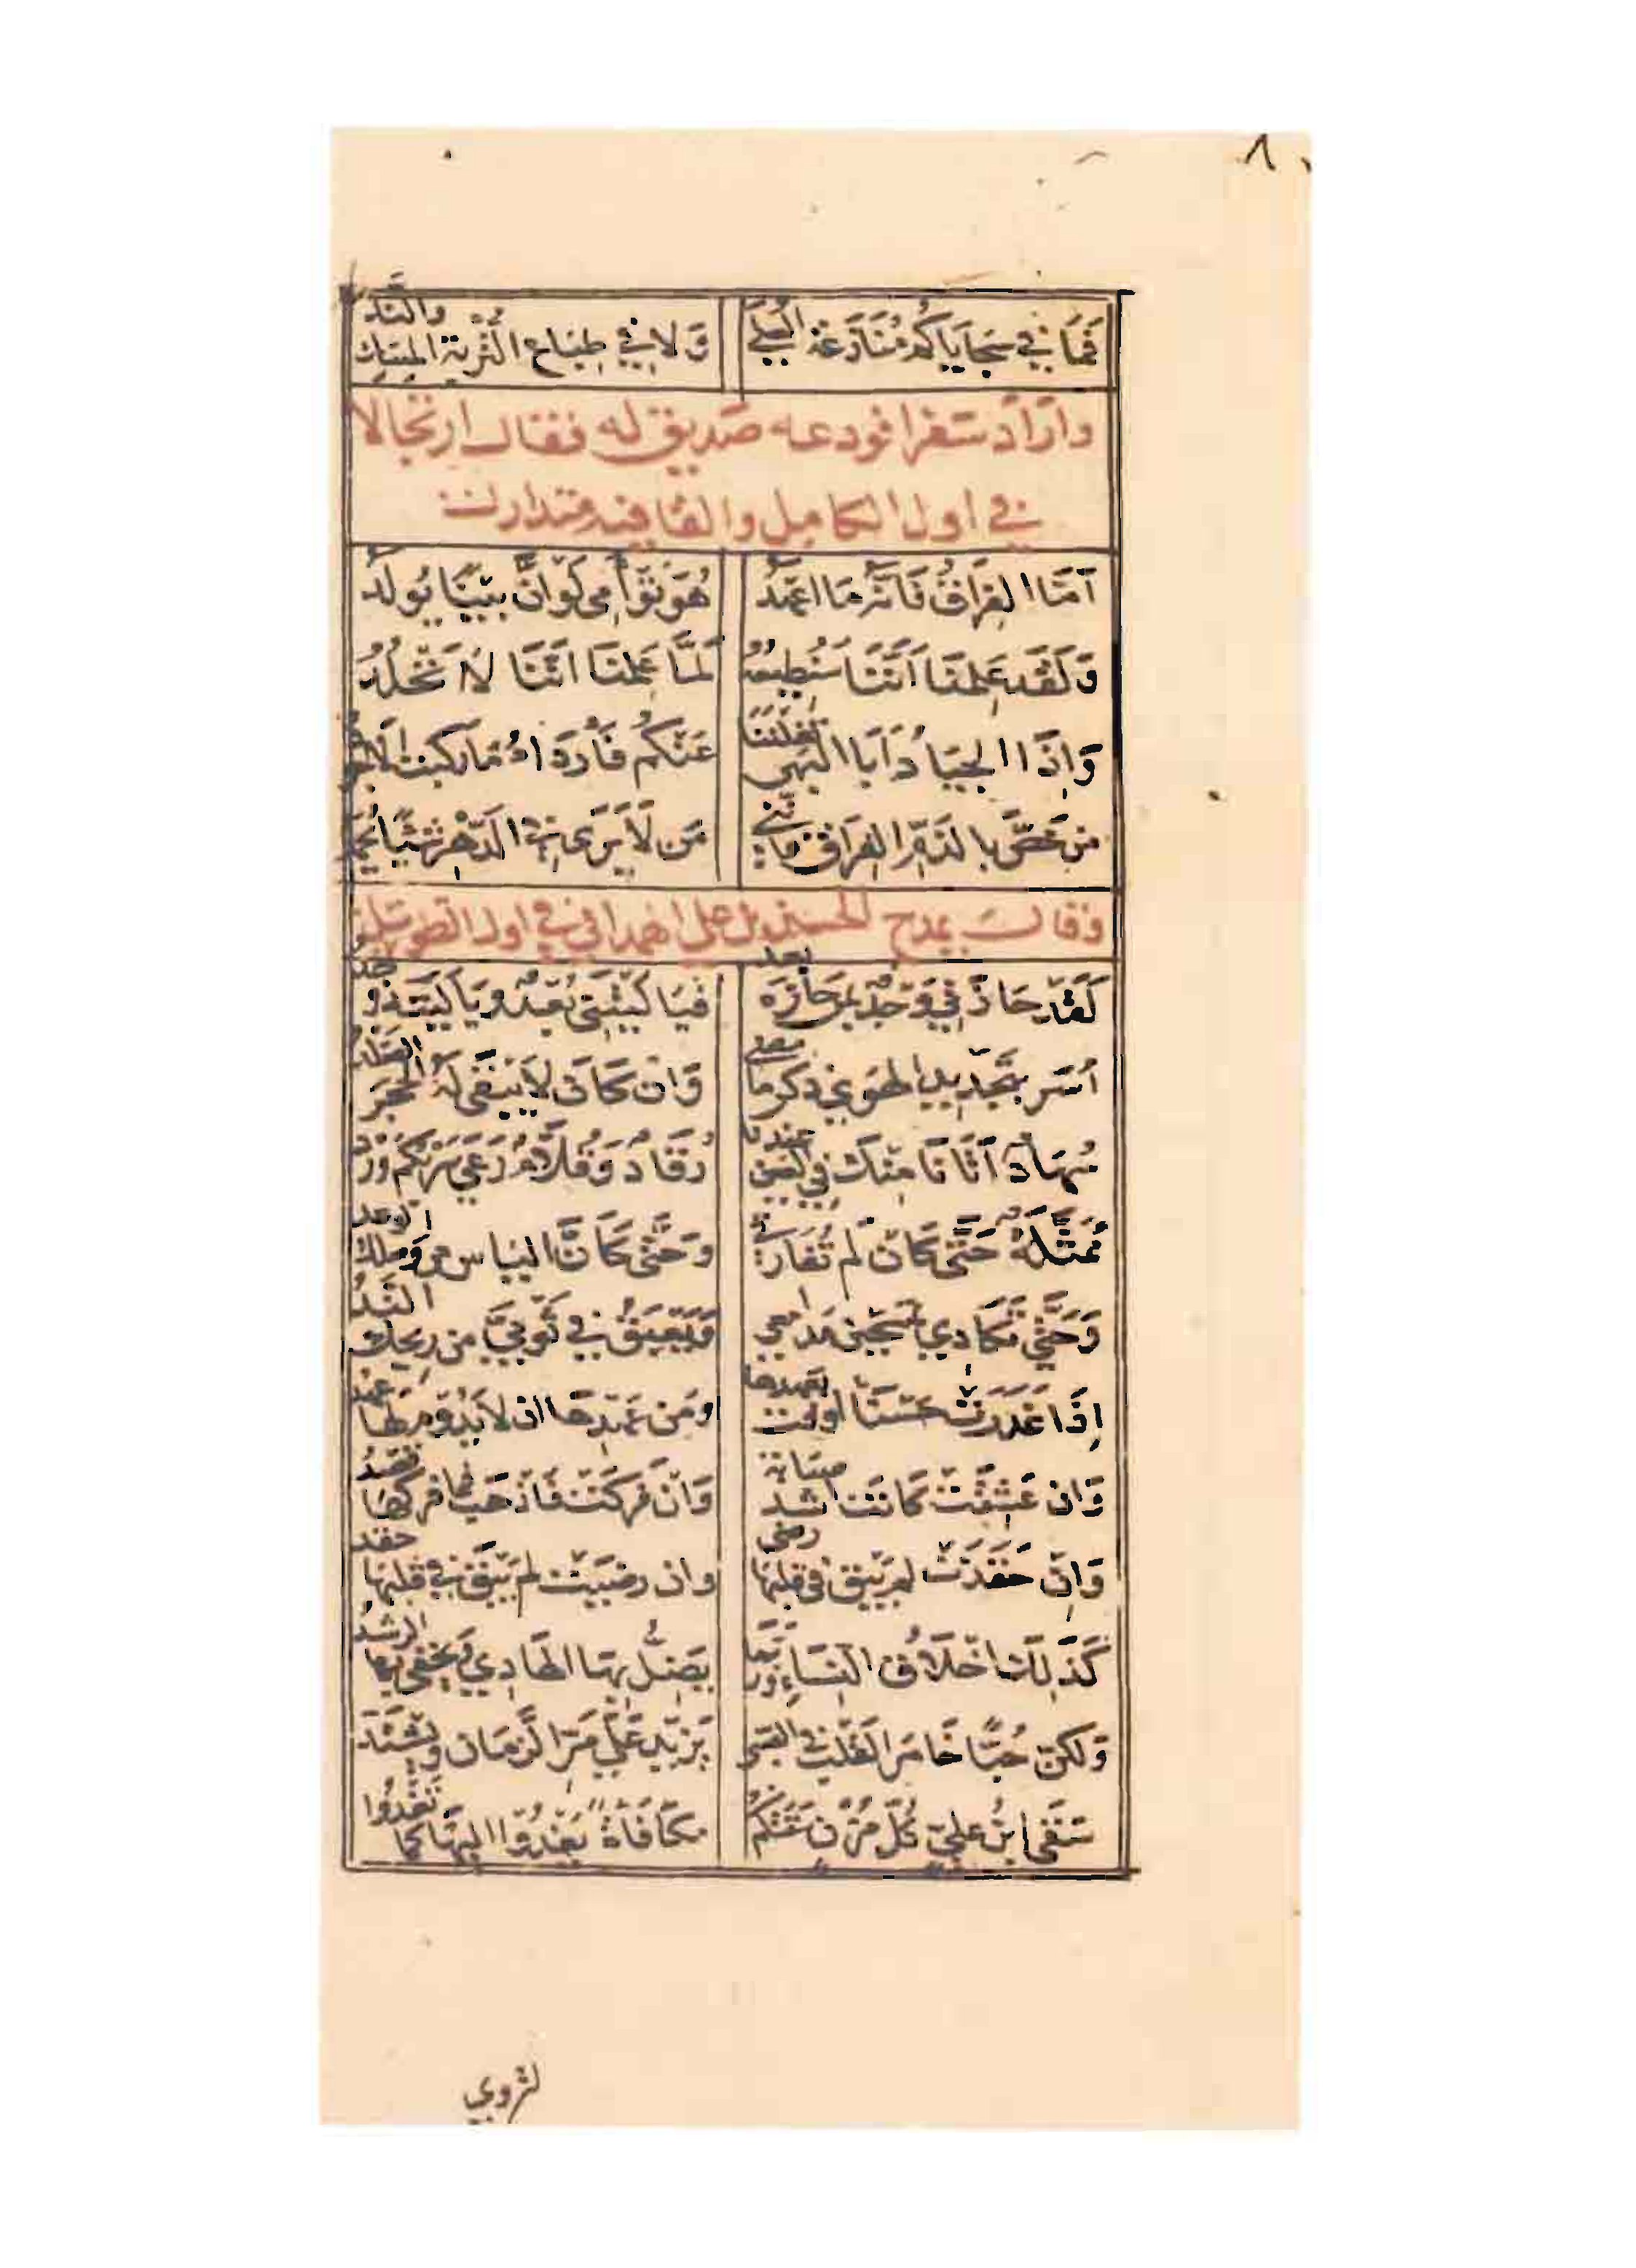 ٨
فَمَا فِي سَجَايَاكُمْ مُنَازَعَةُ العُلَى وَلَا فِي طِبَاعِ التُّرْبَةِ المِسْكُ والنَّدُّ
وأراد سفرا فودعه صديق له فقال ارتجالا
في اول الكامل والقافيه متدارك
أَمَّا الفِرَاقُ فَاِنَّهُ مَا اعْهَدُ هُوَ تَوْأَمِي لَوْ اَنَّ بَيْنًا يُولَدُ
وَلَقَد عَلِمْنَا اَنَّنَا سَنُطِيعُهُ لَمَّا عَلِمْنَا اَنَّنَا لَا نَخْلُدُ
وَاِذَا الجِيَادُ اَبَا البَهِيِّ نَقَلْنَنَا عَنْكُم فَأَرْدَاءُ مَا ركبت الاجود
مَن خَصَّ بِالذَّمِّ الفِرَاقَ فَاِنَّنِي مَن لَا يَرَى فِي الدَّهْرِ شَيْئًا يُحْمَدُ
وقال يمدح الحسين بن علي الهمداني في اول الطويل
لَقَدْ حَازَنِي وَجْدٌ بِمَن حَازَهُ بعد فَيَا لَيْتَنِي بُعْدٌ وَيَا لَيْتَهُ وجد
أُسَرُّ بِتَجْدِيدِ الهَوَى ذكر ما مضى وَاِن كَانَ لَا يَبْقَى لَهُ الحَجَرُ الصَّلْدُ
سُهَادٌ أَتَانَا مِنْكِ فِي العَيْنِ عندنا رُقَادٌ وَقُلَّامٌ رَعَى سَرْبُكُم وَرْدُ
مُمَثَّلَةٌ حَتَّى كَأَن لَم تُفَارِقِي وَحَتَّى كَأَنَّ اليَاسَ مِن وَصْلِكِ الوعد
وَحَتَّى تَكَادِي تَمْسَحِينَ مَدَامِعِي وَيَعْبَقُ فِي ثَوْبَيَّ مِن رِيحِكِ النَّدُّ
اِذَا غَدَرَتْ حَسْنَا اوفت بعهدها وَمَن عَهْدِهَا ان لَا يَدُومَ لَهَا عهد
وَاِن عَشِقَتْ كَانَت اشد صبابة وَاِنْ فَرِكَتْ فَاذْهَب فما فركها قصدُ
وَاِن حَقَدَتْ لم يَبْقَ في قلبها رضى وان رضيت لم يَبْقَ في قلبها حقد
كَذَلِكَ اخْلَاقُ النِّسَاءِ وَرُبَّمَا يَضِلُّ بِهَا الهَادِي وَيَخْفَى بِهَا الرشدُ
وَلَكِنَّ حُبًّا خَامَرَ القَلْبَ فِي الصبي يَزِيدُ عَلَى مَرِّ الزَّمَانِ وَيَشْتَدُّ
سَقَى ابْنُ عَلِيٍّ كُلَّ مُزْنٍ سَقَتْكُمُ مكَافَاةً يَغْدُوا اليها كما تَغْدُوا
لتروي